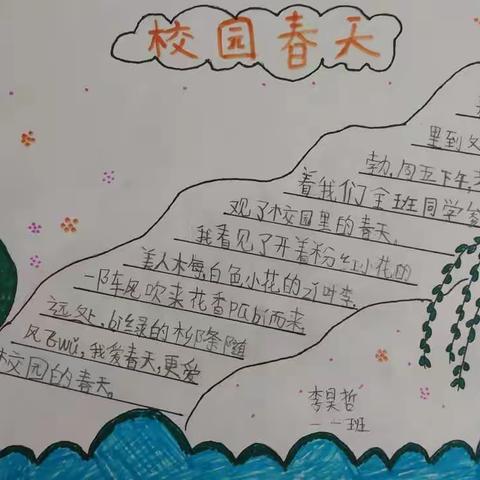 校园春天
里到处
勃,周五下午,
着我们全班同学参
观了校园里的春天。
我看见了开着粉红小花的
美人木每,白色小花的zi叶李,
一阵风吹来花香PUbi而来,
远处,bi绿的柳条随
风飞wǔ,我爱春天,更爱
校园的春天。
李昊哲
一·一班